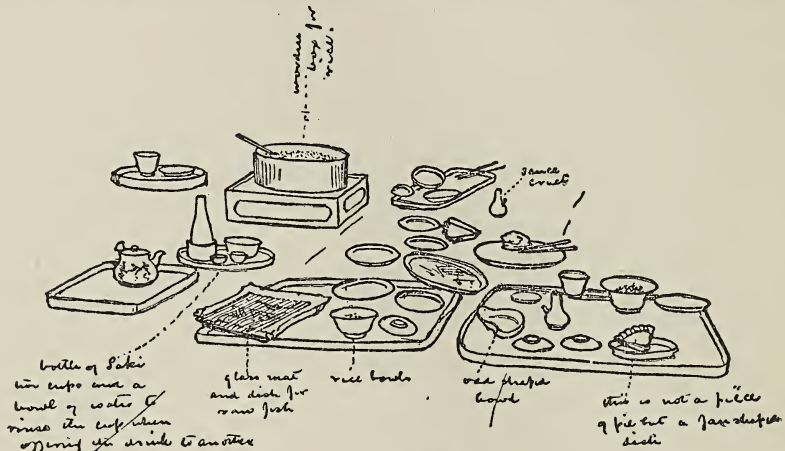 wooden
box for
rice.
sauce
cruet
bottle of Saki
two cups and a
bowl of water to
rinse the cup when
offering a drink to another
glass mat
and dish for
raw fish
rice bowls
odd shaped
bowl
this is not a piece
of pie but a fan shaped
dish